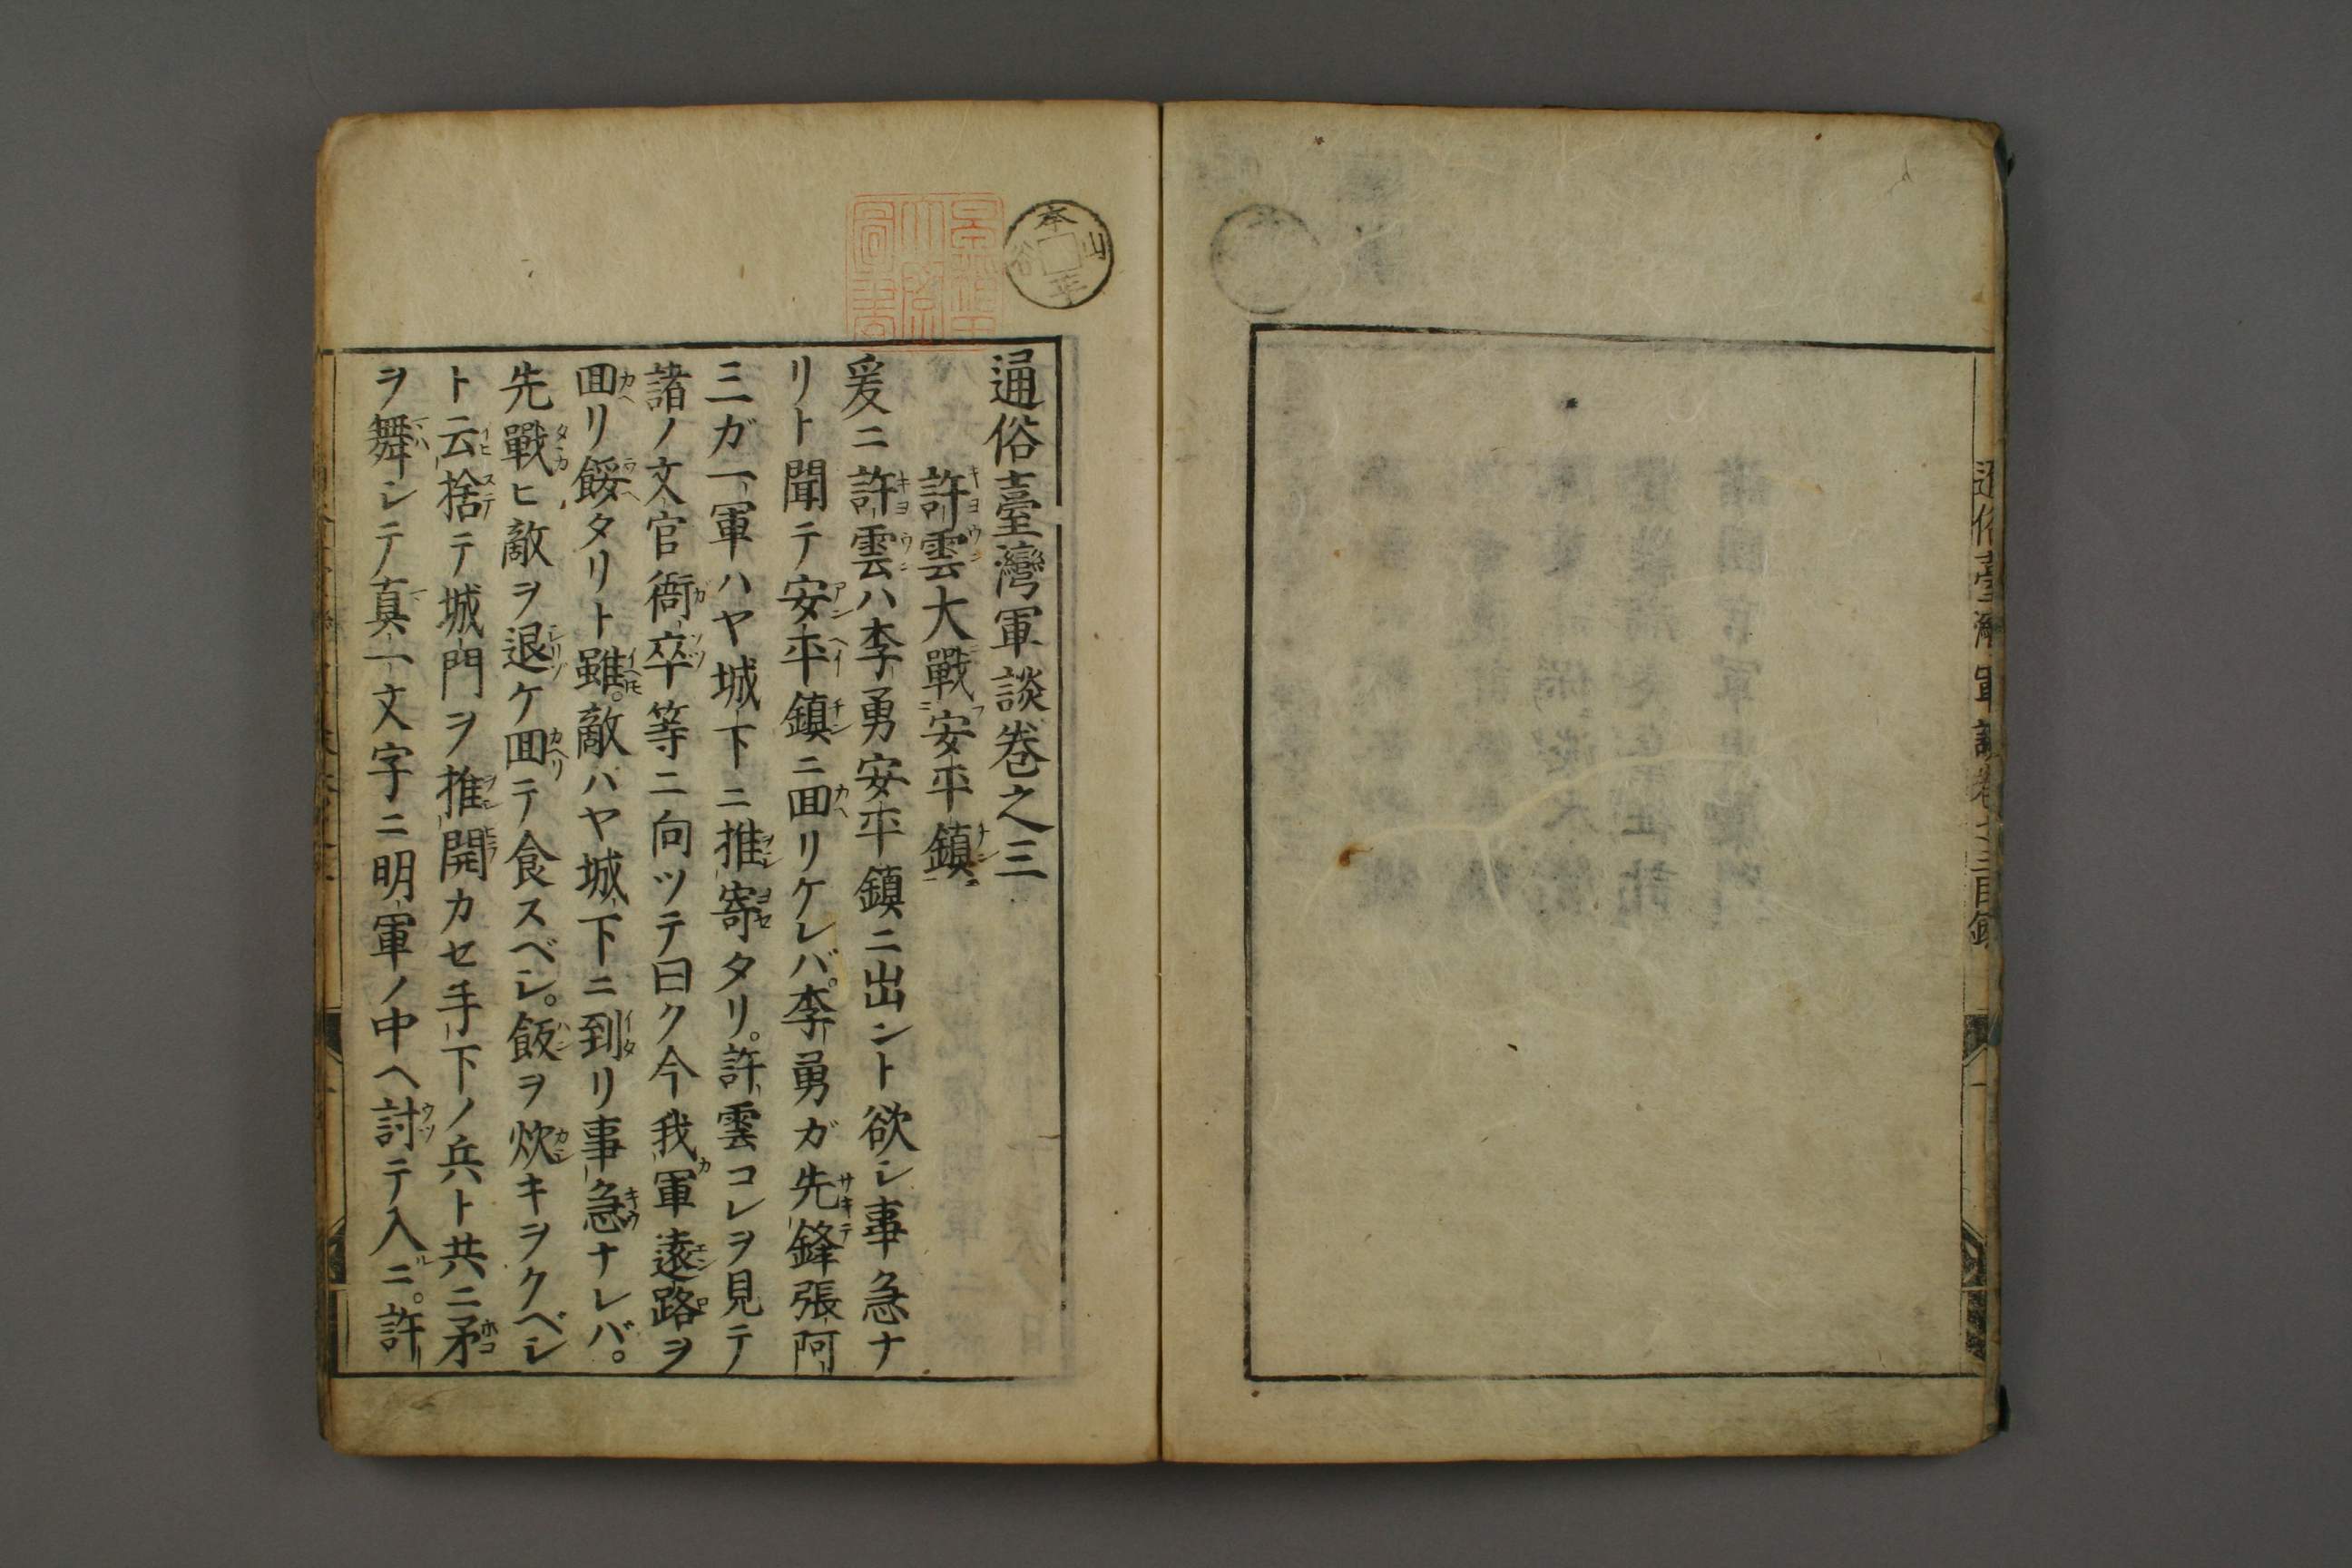 通俗臺灣軍談卷之三目錄
通俗臺灣軍談卷之三
許雲大戰安平鎮
爰ニ許雲ハ李勇安平鎮ニ出ント欲シ事急ナ
リト聞テ安平鎮ニ回リケレバ。李勇ガ先鋒張阿
三ガ一軍ハヤ城下ニ推寄タリ。許雲コレヲ見テ
諸ノ文官衙卒等ニ向ツテ曰ク今我軍遠路ヲ
回リ餒タリト雖。敵ハヤ城下ニ到リ事急ナレバ。
先戰ヒ敵ヲ退ケ回テ食スベシ。飯ヲ炊キヲクベシ
ト云捨テ城門ヲ推開カセ手下ノ兵ト共ニ矛
ヲ舞シテ真一文字ニ明軍ノ中ヘ討テ入ニ。許